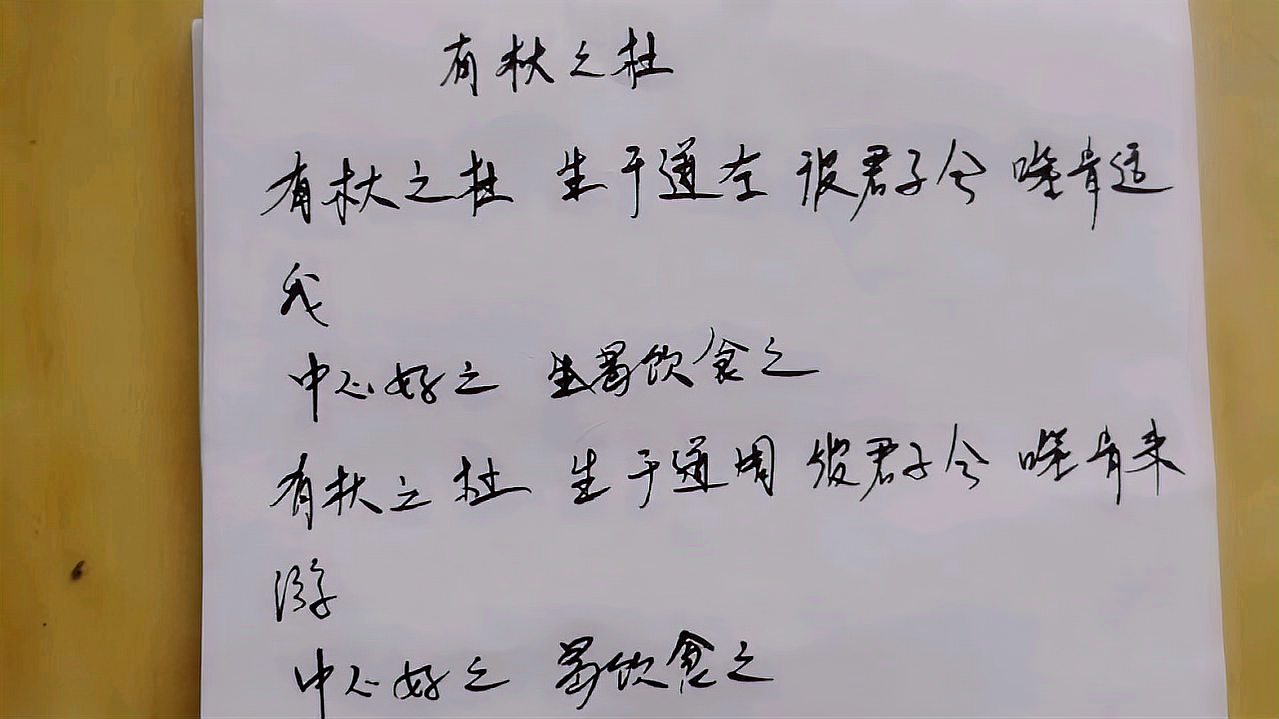 有杕之杜
有杕之杜 生于道左 彼君子兮 噬肯适
我
中心好之 生曷饮食之
有杕之杜 生于道周 彼君子兮 噬肯来
游
中心好之 曷饮食之